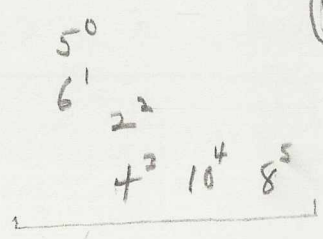 5⁰
6¹
2²
4³ 10⁴ 8⁵